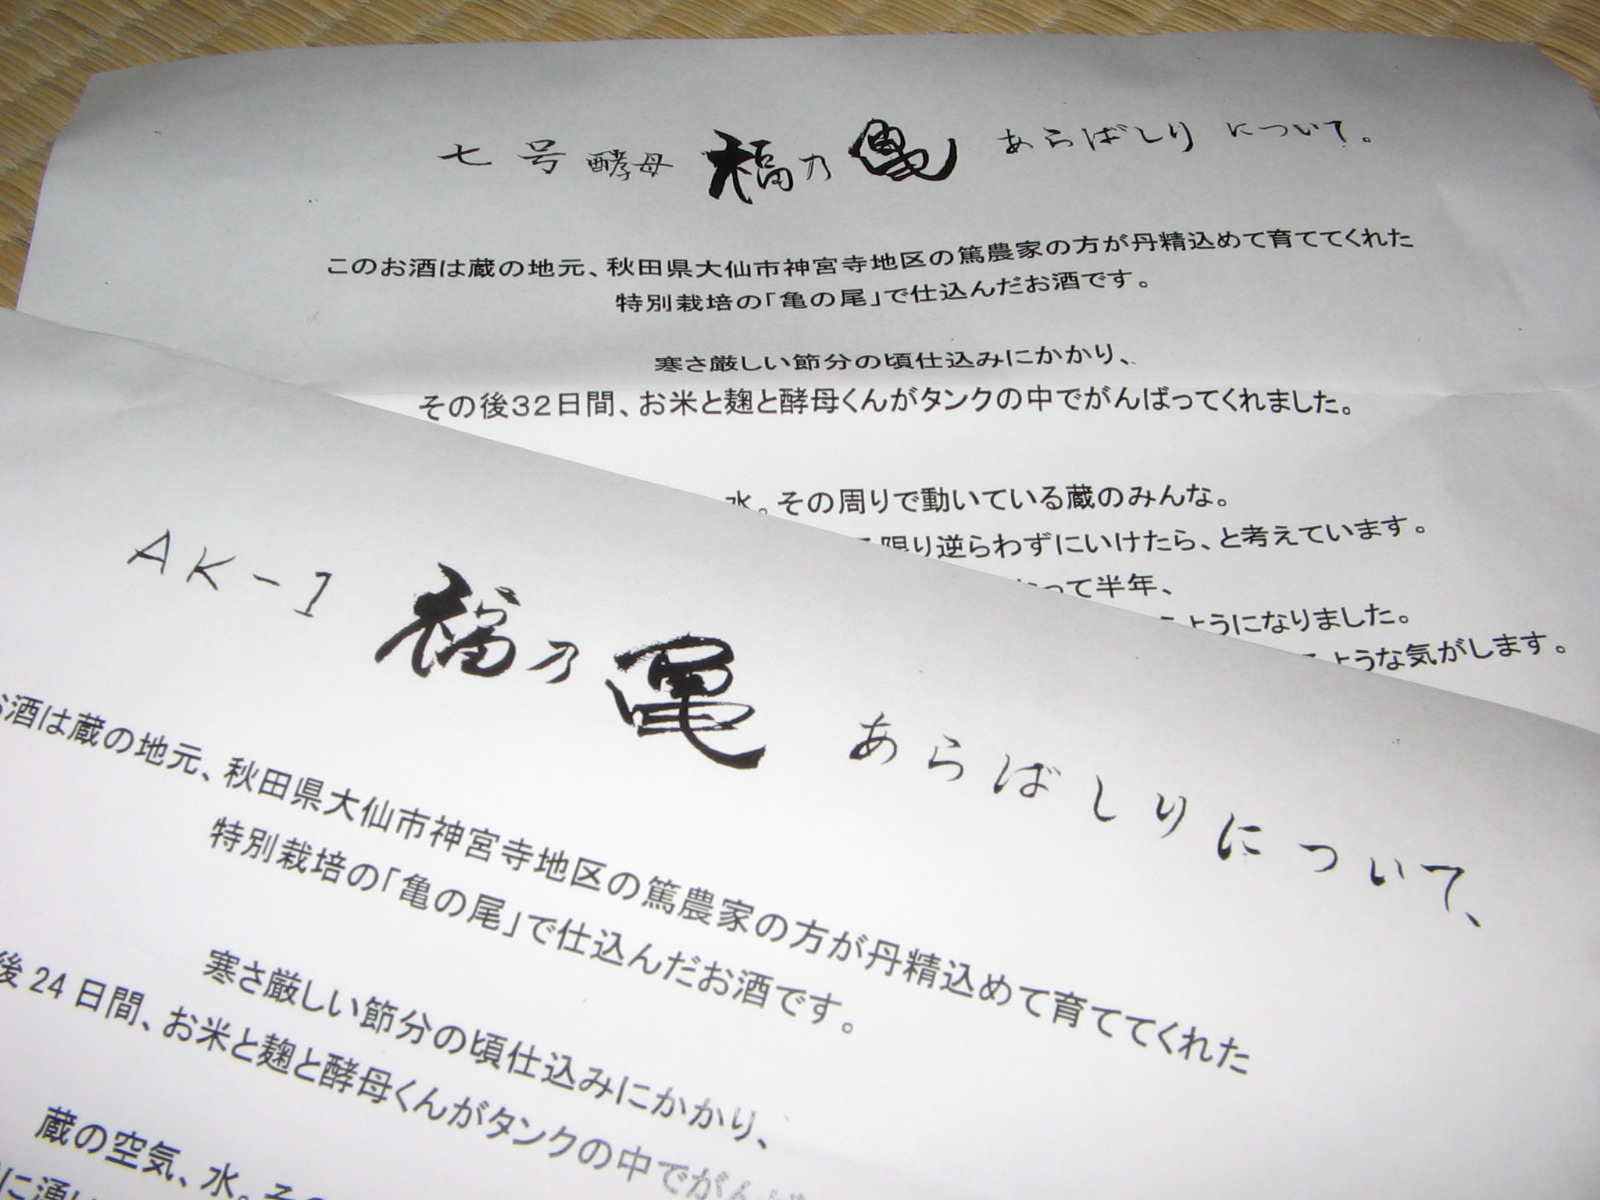 七号酵母 福乃亀 あらばしり について。
このお酒は蔵の地元、秋田県大仙市神宮寺地区の篤農家の方が丹精込めて育ててくれた
特別栽培の「亀の尾」で仕込んだお酒です。
寒さ厳しい節分の頃仕込みにかかり、
その後32日間、お米と麹と酵母くんがタンクの中でがんばってくれました。
水。その周りで動いている蔵のみんな。
限り逆らわずにいけたら、と考えています。
って半年、
ようになりました。
ような気がします。
AK-1 福乃亀 あらばしりについて、
お酒は蔵の地元、秋田県大仙市神宮寺地区の篤農家の方が丹精込めて育ててくれた
特別栽培の「亀の尾」で仕込んだお酒です。
寒さ厳しい節分の頃仕込みにかかり、
後24日間、お米と麹と酵母くんがタンクの中でがんば
蔵の空気、水。その
に湧